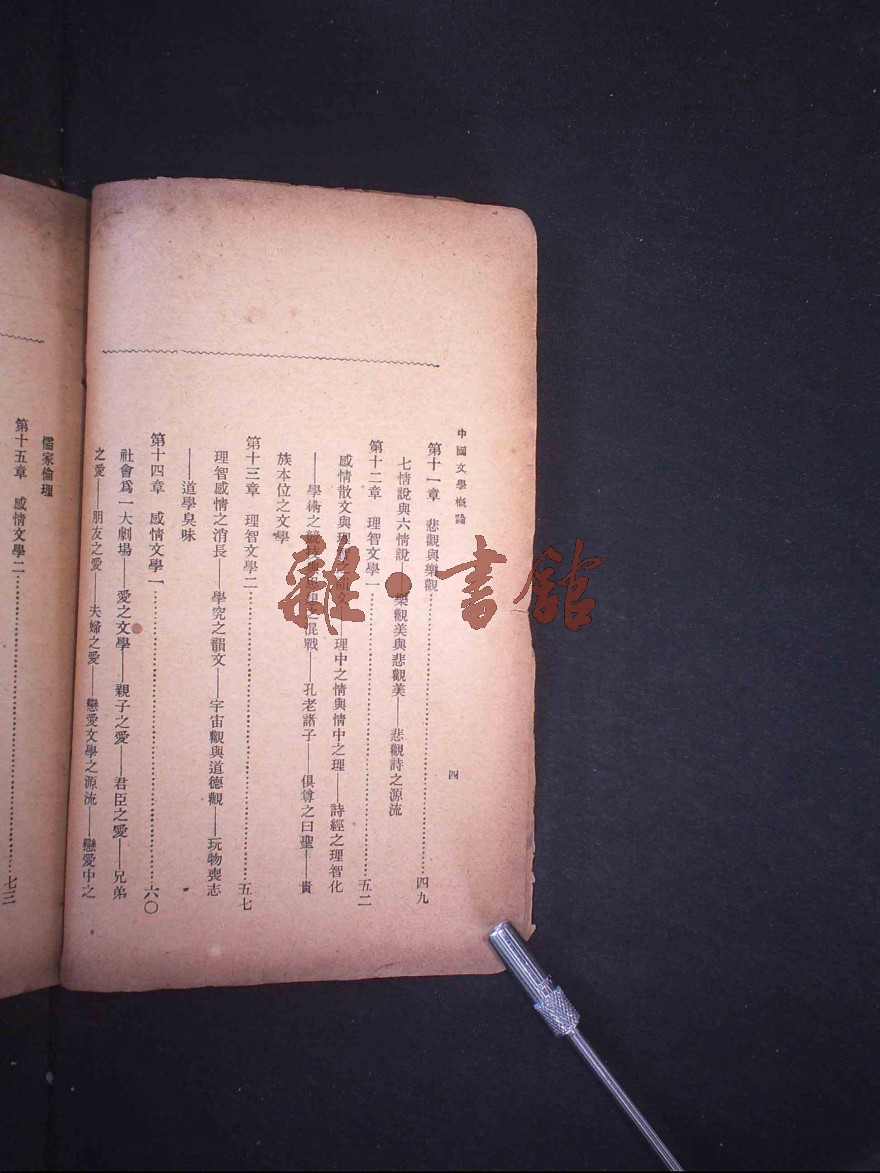 中國文學概論
四
第十一章　悲觀與樂觀…………四九
七情說與六情說——樂觀美與悲觀美——悲觀詩之源流
第十二章　理智文學一…………五二
感情散文與理 之 文——理中之情與情中之理——詩經之理智化
——學術之 混戰——孔老諸子——俱尊之曰聖——貴
族本位之文學
第十三章　理智文學二…………五七
理智感情之消長——學究之韻文——宇宙觀與道德觀——玩物喪志
——道學臭味
第十四章　感情文學一…………六〇
社會爲一大劇場——愛之文學——親子之愛——君臣之愛——兄弟
之愛——朋友之愛——夫婦之愛——戀愛文學之源流——戀愛中之
儒家倫理
第十五章　感情文學二…………七三
雜·書館